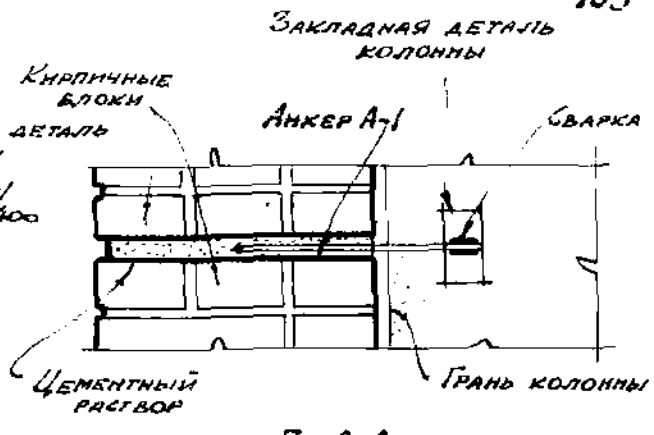 Закладная деталь
колонны
Кирпичные
блоки
деталь
Анкер А-1
Сварка
Цементный
раствор
Грань колонны